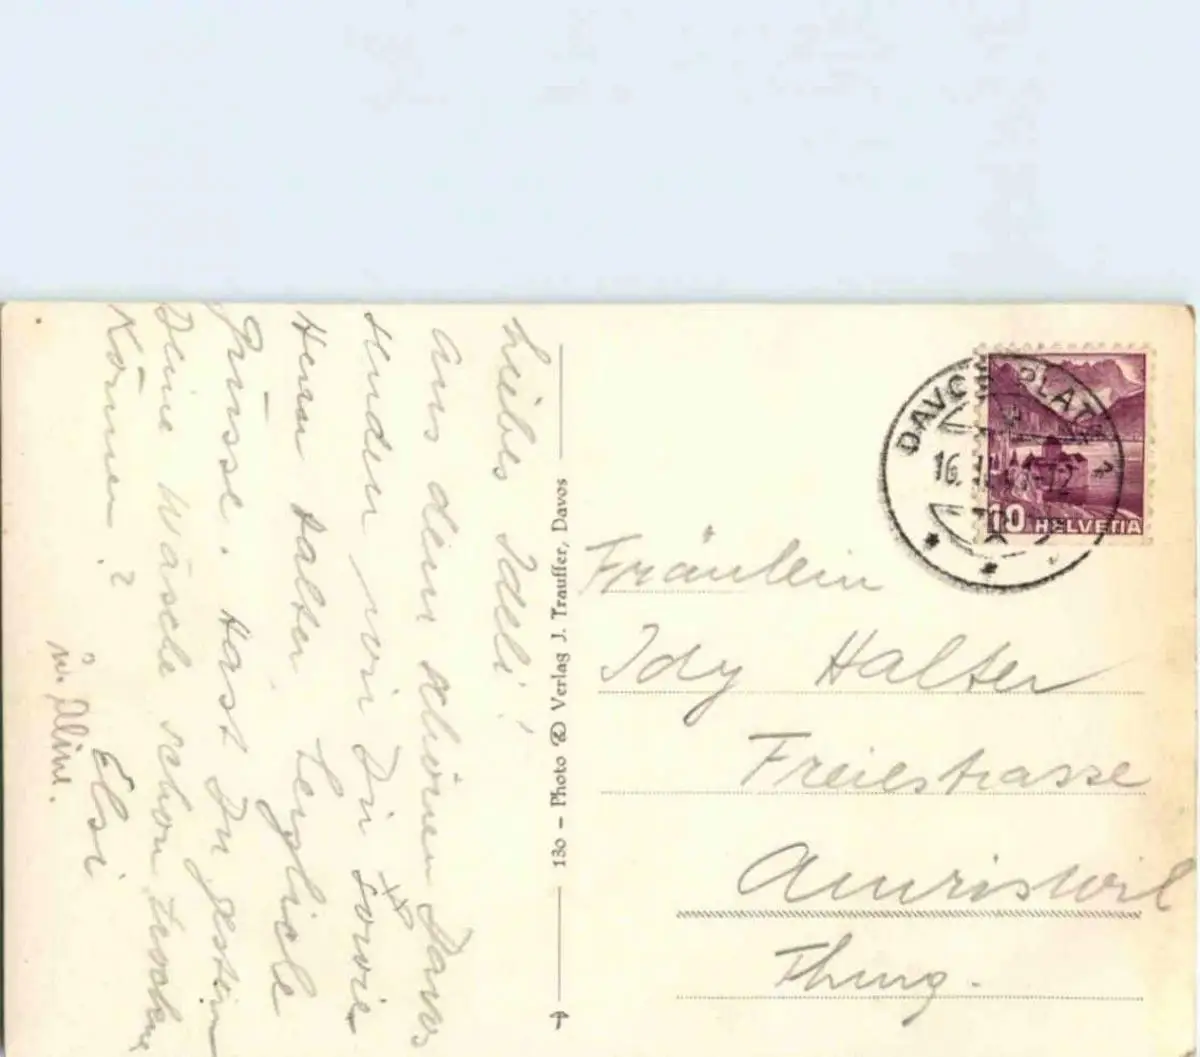 Liebes Ideli!
Aus dem schönen Davos
senden wir Dir sowie
Herrn Halter herzliche
Grüsse. Hast Du gestern
Deine Wäsche schon
Können?
Elsi
u. Aline.
130 - Photo Verlag J. Trauffer, Davos
DAVOS PLATZ
16.
10 HELVETIA
Fräulein
Idy Halter
Freiestrasse
Amriswil
Thurg.